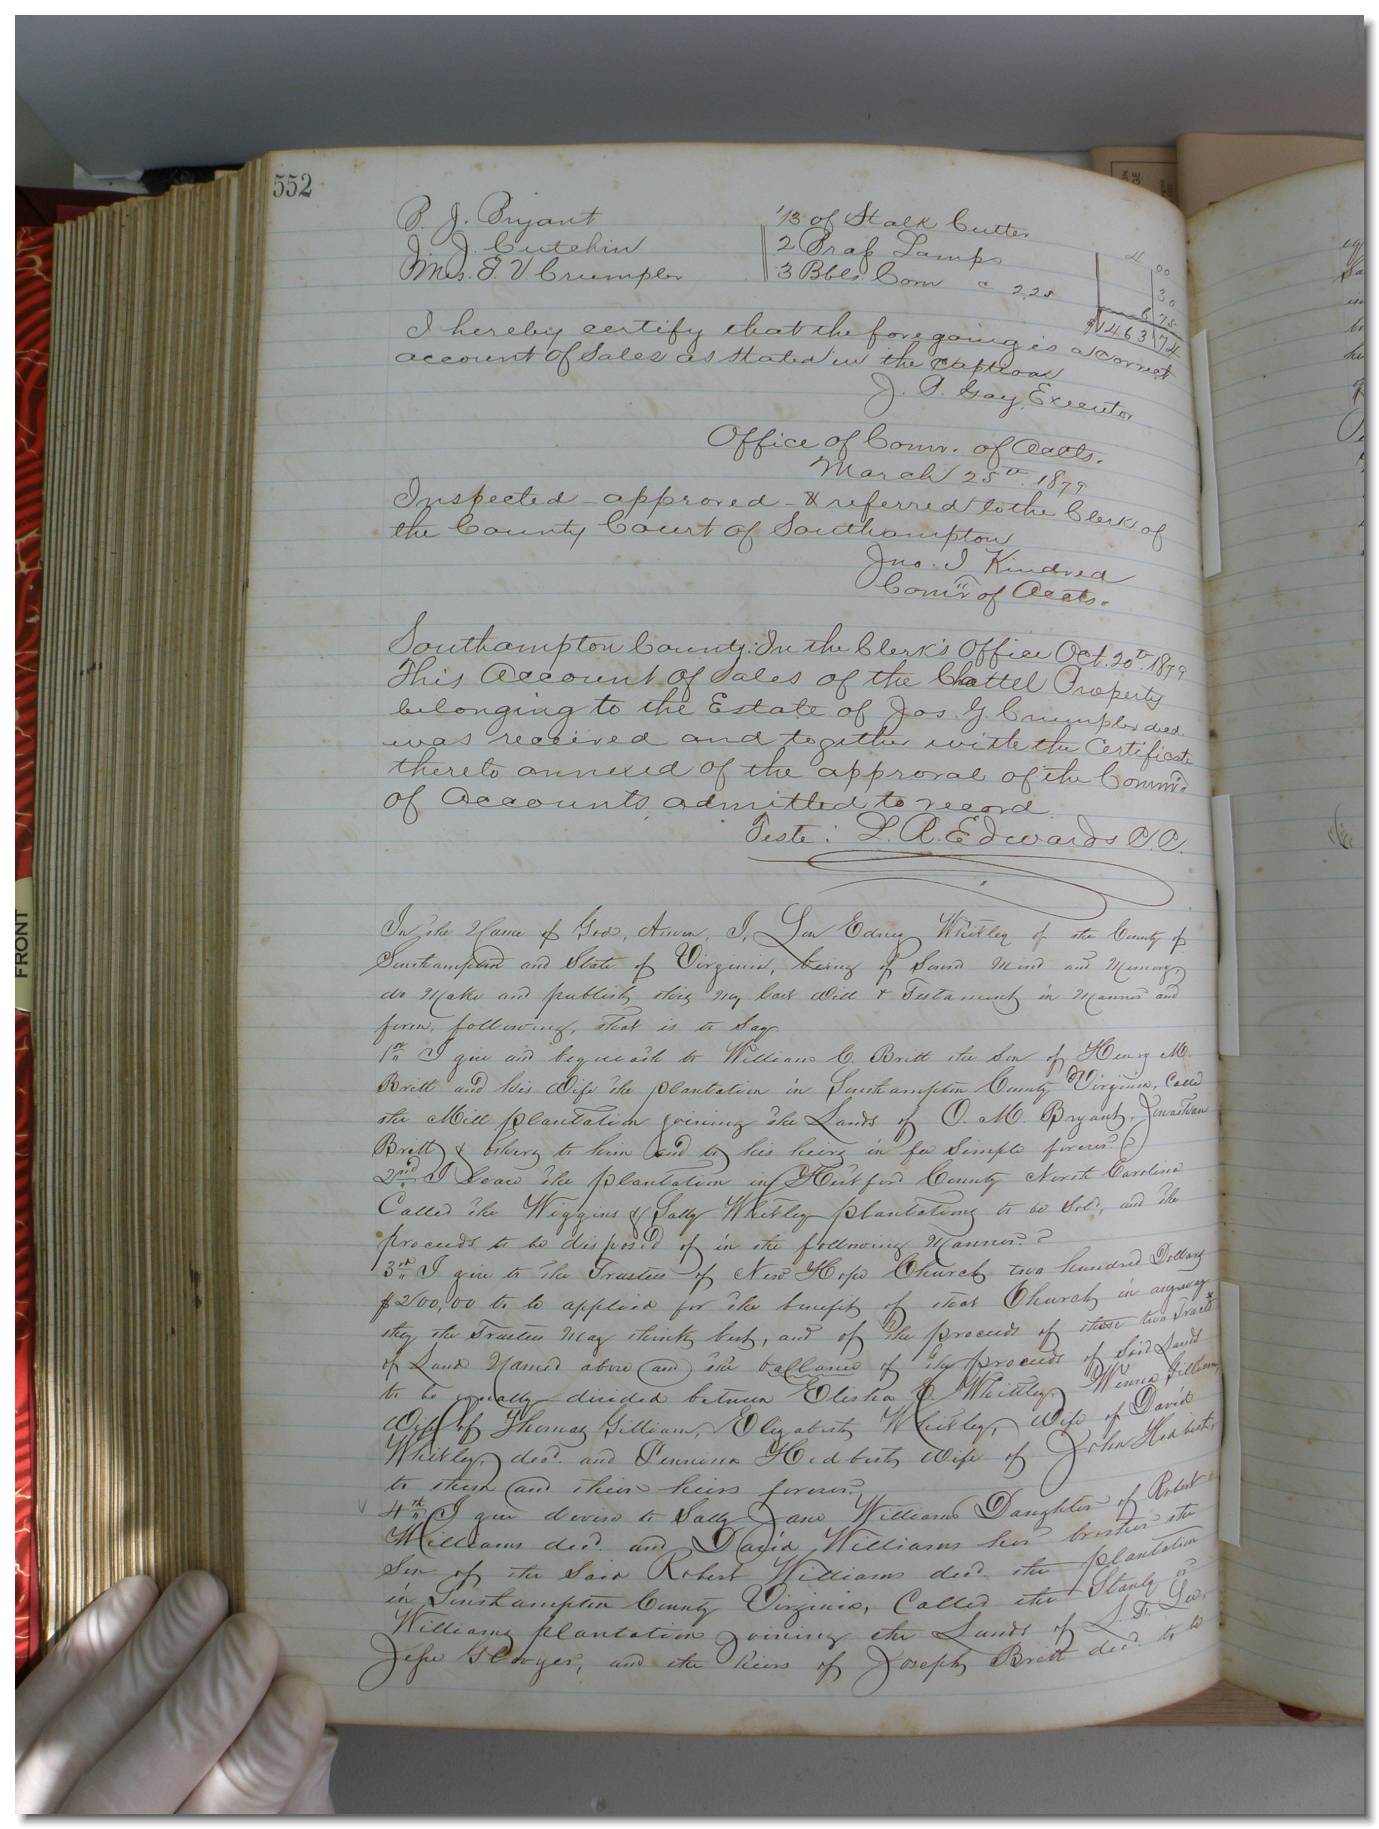 552
P. J. Bryant 1/3 of Stalk Cutter 4 00
J. J. Cutchin 2 Braſs Lamps 30
Mrs. E. V Crumpler 3 Bbls. Corn @ 2.25 6 75
$1463 74
I hereby certify that the foregoing is a correct
account of Sales as stated in the Caption
J. P. Gay, Executor
Office of Comr. of Accts.
March 25th 1879
Inspected - approved - & referred to the Clerk of
the County Court of Southampton
Jno. I Kindred
Comr. of Accts.
Southampton County: In the Clerk's Office Oct. 20th 1879
This Account of Sales of the Chattel Property
belonging to the Estate of Jos. G. Crumpler decd.
was received and together with the Certificate
thereto annexed of the approval of the Commr.
of Accounts, admitted to record.
Teste: L. R. Edwards C.C.
In the Name of God, Amen, I, Edney Whitley of the County of
Southampton and State of Virginia, being of Sound Mind and Memory,
do Make and publish this My last Will & Testament in Manner and
form, following, that is to Say
1st I give and bequeath to William C. Britt the Son of Henry M.
Britt and his Wife the plantation in Southampton County Virginia, Called
the Mill plantation joining the Lands of O. M. Bryant, Jonathan
Britt & others to him and to his heirs in fee Simple forever.
2nd I leave the plantation in Hertford County North Carolina
Called the Wiggins & Sally Whitley plantations to be Sold, and the
proceeds to be disposed of in the following Manner.
3rd I give to the Trustees of New Hope Church two hundred Dollars
$200,00 to be applied for the benefit of that Church in anyway
they the Trustees May think best, and of the proceeds of those two Tracts
of Land Named above and the ballance of the proceeds of Said Lands
to be equally divided between Elisha C. Whitley, Winna Gilliam,
Wife of Thomas Gilliam, Elizabeth Whitley, Wife of David
Whitley, decd. and Pennona Hedbuth Wife of John Hedbuth,
to them and their heirs forever.
4th I give devise to Sally Jane Williams Daughter of Robert
Williams decd. and David Williams her brother the
Son of the Said Robert Williams decd. the plantation
in Southampton County Virginia, Called the Stanly or
Williams plantation joining the Lands of L. F. Lee,
Jeſse Glover, and the heirs of Joseph Britt decd. to be
FRONT